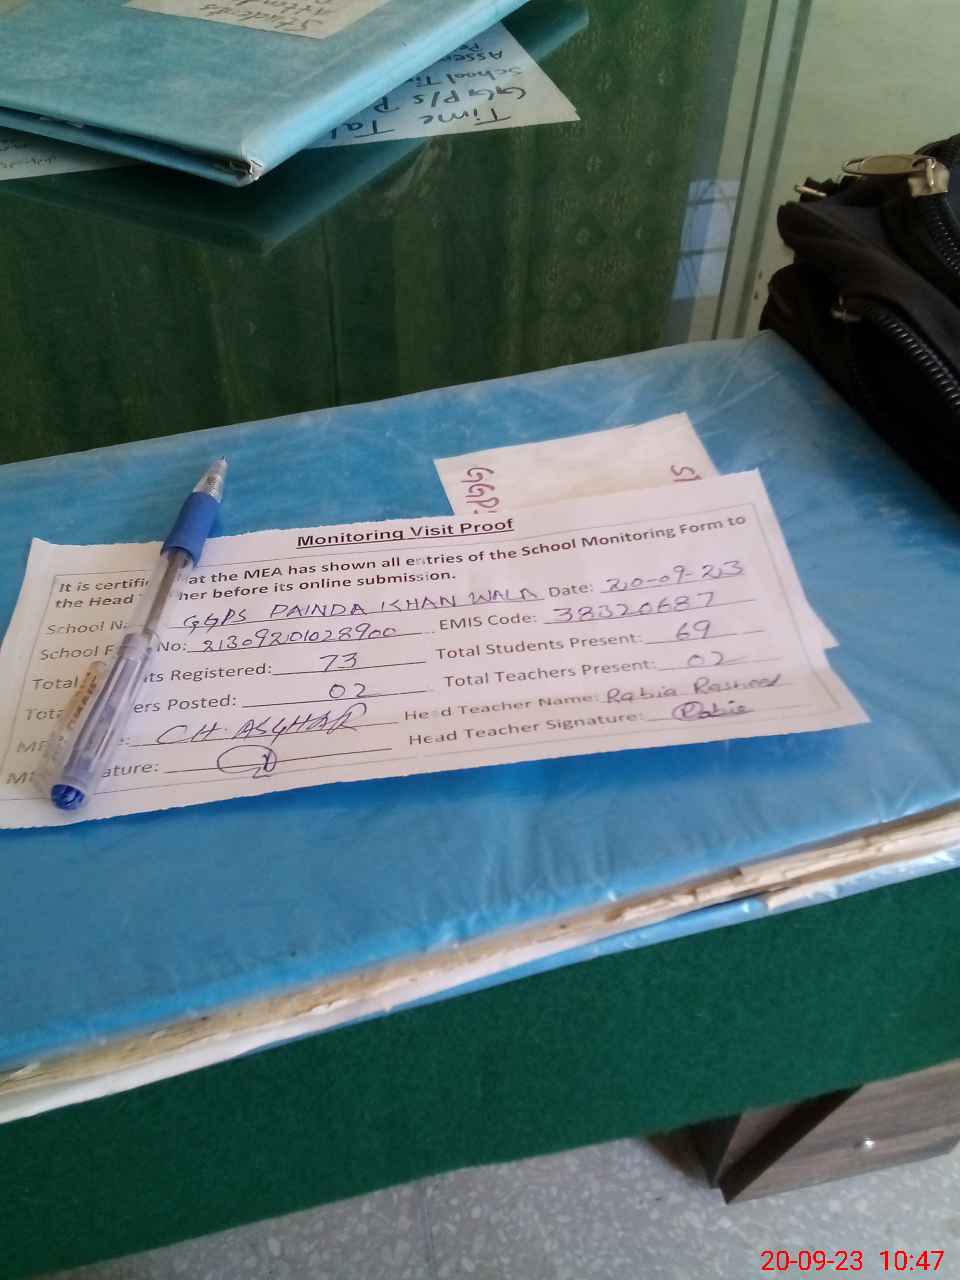 Students
Time Tal
GGP/s P
School Ti
Assem
GGPS
Monitoring Visit Proof
It is certifi at the MEA has shown all entries of the School Monitoring Form to
the Head her before its online submission.
School Na GGPS PAINDA KHAN WALA Date: 20-09-23
School F No: 21309201028900 EMIS Code: 38320687
Total ts Registered: 73 Total Students Present: 69
Tota ers Posted: 02 Total Teachers Present: 02
ME e: CH. ASGHAR Head Teacher Name: Rabia Rasheed
ME ature: Head Teacher Signature: Rabia
20-09-23 10:47